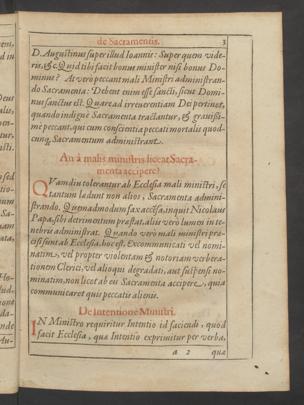 de Sacramentis. 3
D. Augustinus super illud Ioannis: Super quem vide-
ris, &c. Quid tibi facit bonus minister nisi bonus Do-
minus? At verò peccant mali Ministri administran-
do Sacramenta: Debent enim esse sancti, sicut Domi-
nus sanctus est. Quare ad irreuerentiam Dei pertinet,
quando indignè Sacramenta tractantur, & grauissi-
mè peccant, qui cum conscientia peccati mortalis quod-
cunq; Sacramentum administrant.
An à malis ministris liceat Sacra-
menta accipere?
QVamdiu tolerantur ab Ecclesia mali ministri, se
tantum lædunt non alios, Sacramenta admini-
strando. Quemadmodum fax accesa, inquit Nicolaus
Papa, sibi detrimentum præstat, aliis verò lumen in te-
nebris administrat. Quando verò mali ministri præ-
cisi sunt ab Ecclesia, hoc est, Excommunicati vel nomi-
natim, vel propter violentam & notoriam verbera-
tionem Clerici, vel alioqui degradati, aut suspensi no-
minatim, non licet ab eis Sacramenta accipere, quia
communicaret quis peccatis alienis.
De Intentione Ministri.
IN Ministro requiritur Intentio id faciendi, quod
facit Ecclesia, quæ Intentio exprimitur per verba,
a 2 quæ